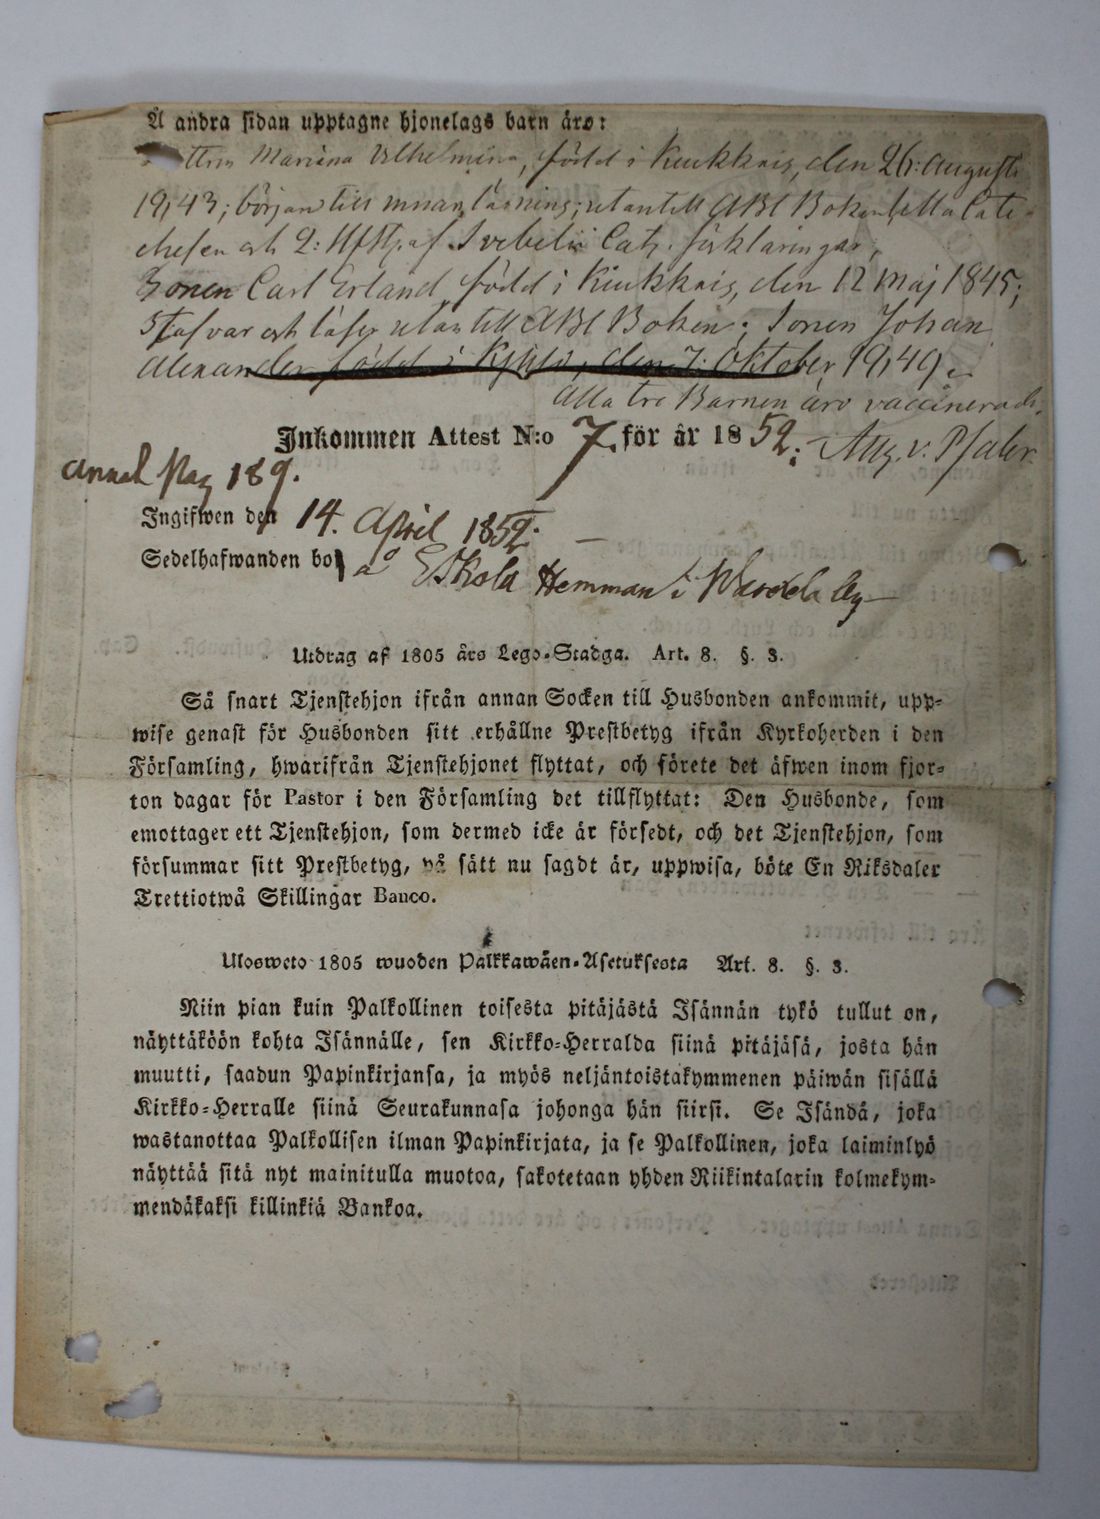 Å andra sidan upptagne hjonelags barn äro:
Mariana Vilhelmina, född i Kiukkais, den 26: Augusti
1843; börjar till innanläsning; utantill ABC Boken lilla Cate-
chesen och 2: af Svebelii Cat. förklaringar;
Sonen Carl Erland, född i Kiukkais, den 12 Maj 1845;
Stafvar och läser utan till ABC Boken; Sonen Johan
Alexander född i Kjulo, den 7: Oktober 1849.
Alla tre Barnen äro vaccinerade.
Inkommen Attest N:o 7. för år 1852. Aug. v. Pfaler
Annal Pag 189.
Ingifwen den 14. April 1852.
Sedelhafwanden bor å Eskola Hemman i By
Utdrag af 1805 års Lego-Stadga. Art. 8. §. 3.
Så snart Tjenstehjon ifrån annan Socken till Husbonden ankommit, upp-
wise genast för Husbonden sitt erhållne Prestbetyg ifrån Kyrkoherden i den
Församling, hwarifrån Tjenstehjonet flyttat, och förete det äfwen inom fjor-
ton dagar för Pastor i den Församling det tillflyttat: Den Husbonde, som
emottager ett Tjenstehjon, som dermed icke är försedt, och det Tjenstehjon, som
försummar sitt Prestbetyg, på sätt nu sagdt är, uppwisa, böte En Riksdaler
Trettiotwå Skillingar Banco.
Ulosweto 1805 wuoden Palkkawäen-Asetuksesta Art. 8. §. 3.
Niin pian kuin Palkollinen toisesta pitäjästä Isännän tykö tullut on,
näyttäköön kohta Isännälle, sen Kirkko-Herralda siinä pitäjäsä, josta hän
muutti, saadun Papinkirjansa, ja myös neljäntoistakymmenen päiwän sisällä
Kirkko-Herralle siinä Seurakunnasa johonga hän siirsi. Se Isändä, joka
wastanottaa Palkollisen ilman Papinkirjata, ja se Palkollinen, joka laiminlyö
näyttää sitä nyt mainitulla muotoa, sakotetaan yhden Riikintalarin kolmekym-
mendäkaksi killinkiä Bankoa.